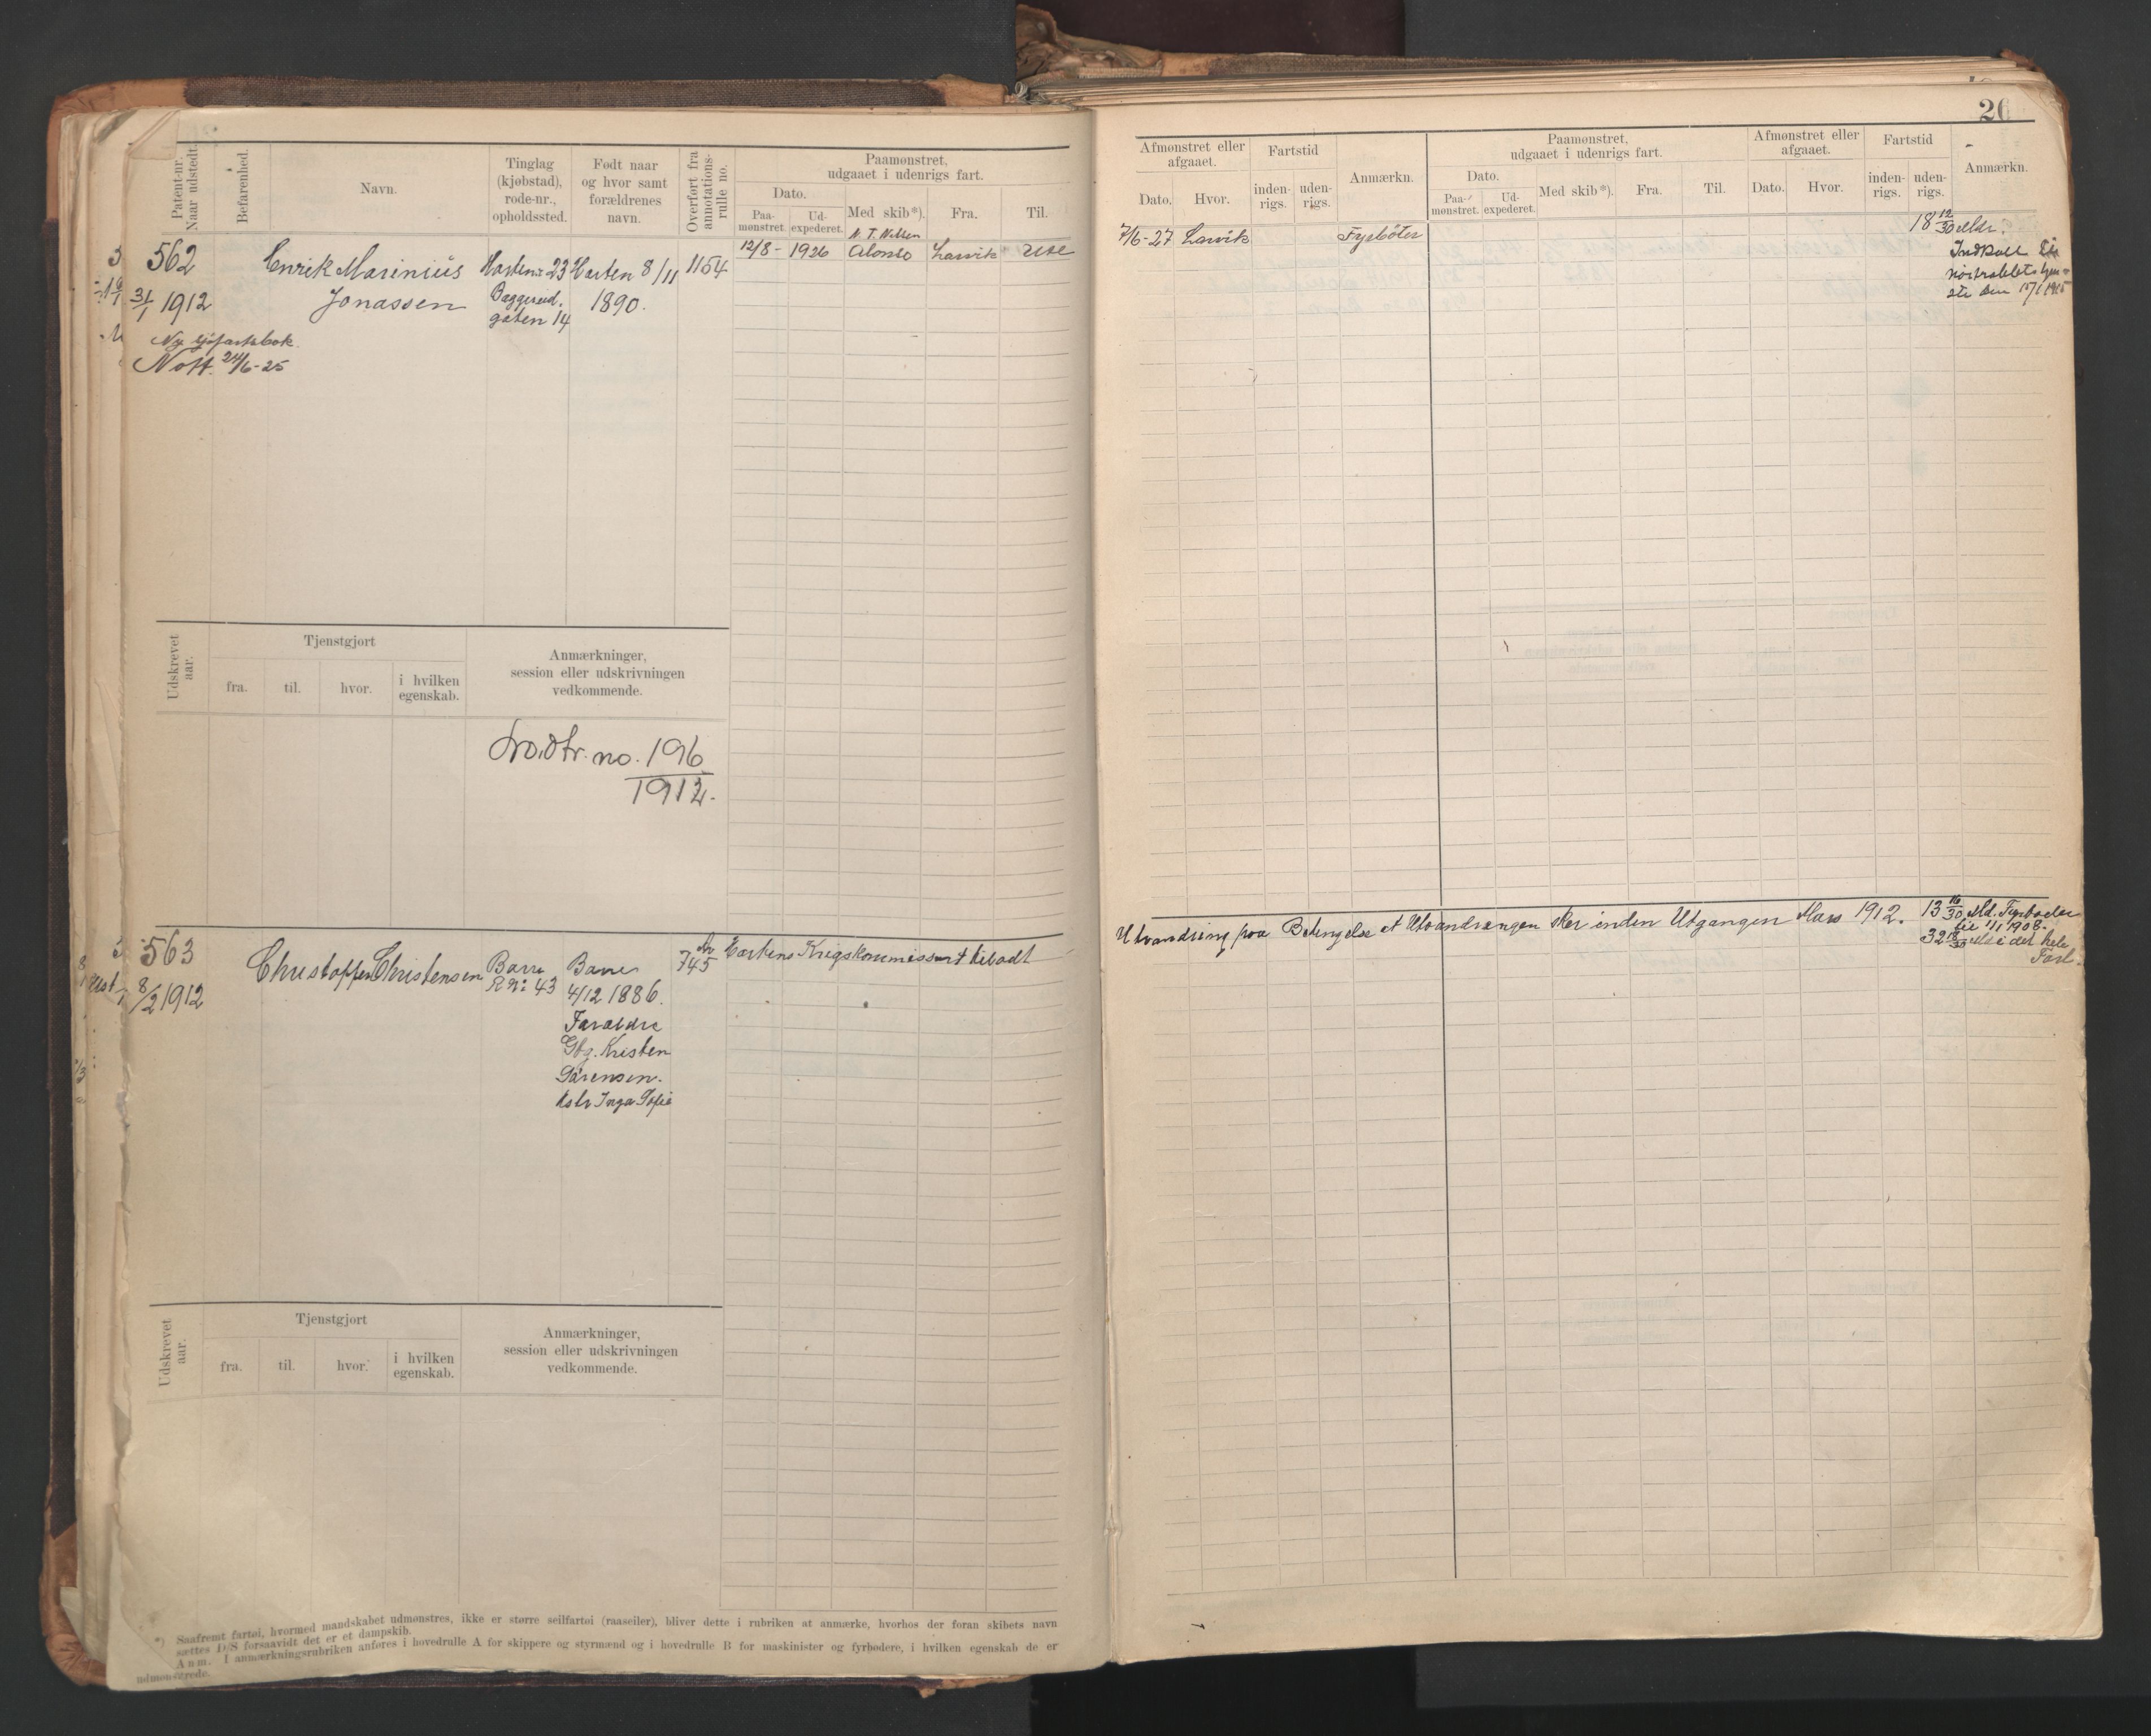 26
Patent-nr. Naar udstedt.
Befarenhed.
Navn.
Tinglag (kjøbstad), rode-nr., opholdssted.
Født naar og hvor samt forældrenes navn.
Overført fra annotations-rulle no.
Paamønstret, udgaaet i udenrigs fart.
Dato.
Paa-mønstret.
Ud-expederet.
Med skib*).
Fra.
Til.
Afmønstret eller afgaaet.
Dato.
Hvor.
Fartstid
inden-rigs.
uden-rigs.
Anmærkn.
Paamønstret, udgaaet i udenrigs fart.
Dato.
Paa-mønstret.
Ud-expederet.
Med skib*).
Fra.
Til.
Afmønstret eller afgaaet.
Dato.
Hvor.
Fartstid
inden-rigs.
uden-rigs.
Anmærkn.
562
3/1 1912
Ny sjøfartsbok
Nott. 24/6-25
Henrik Marinius
Jonassen
Horten 23
Baggerud.
gaten 14
Horten 8/11
1890.
1154
12/8-1926
N. T. Nielsen
Alonso
Larvik
7/6-27 Larvik
Fyrbøter
18 12/30 Mdr.
Indkall
Udskrevet aar.
Tjenstgjort
fra.
til.
hvor.
i hvilken egenskab.
Anmærkninger, session eller udskrivningen vedkommende.
no. 196
1912.
563
8/2 1912
Christoffer Christensen
Borre
R No 43
Borre
4/12 1886.
Forældre
Gbg. Kristen
Sørensen.
Inga Sofie
745
Hortens Krigskommissariat tilladt
Utvandring paa Betingelse at Utvandringen sker inden Utgangen Mars 1912.
13 16/30 Md. Fyrbøder
til 1/1 1908.
32 18/30 Md i det hele
Udskrevet aar.
Tjenstgjort
fra.
til.
hvor.
i hvilken egenskab.
Anmærkninger, session eller udskrivningen vedkommende.
*) Saafremt fartøi, hvormed mandskabet udmønstres, ikke er større seilfartøi (raaseiler), bliver dette i rubriken at anmærke, hvorhos der foran skibets navn
sættes D/S forsaavidt det er et dampskib.
Anm. I anmærkningsrubriken anføres i hovedrulle A for skippere og styrmænd og i hovedrulle B for maskinister og fyrbødere, i hvilken egenskab de er
udmønstrede.